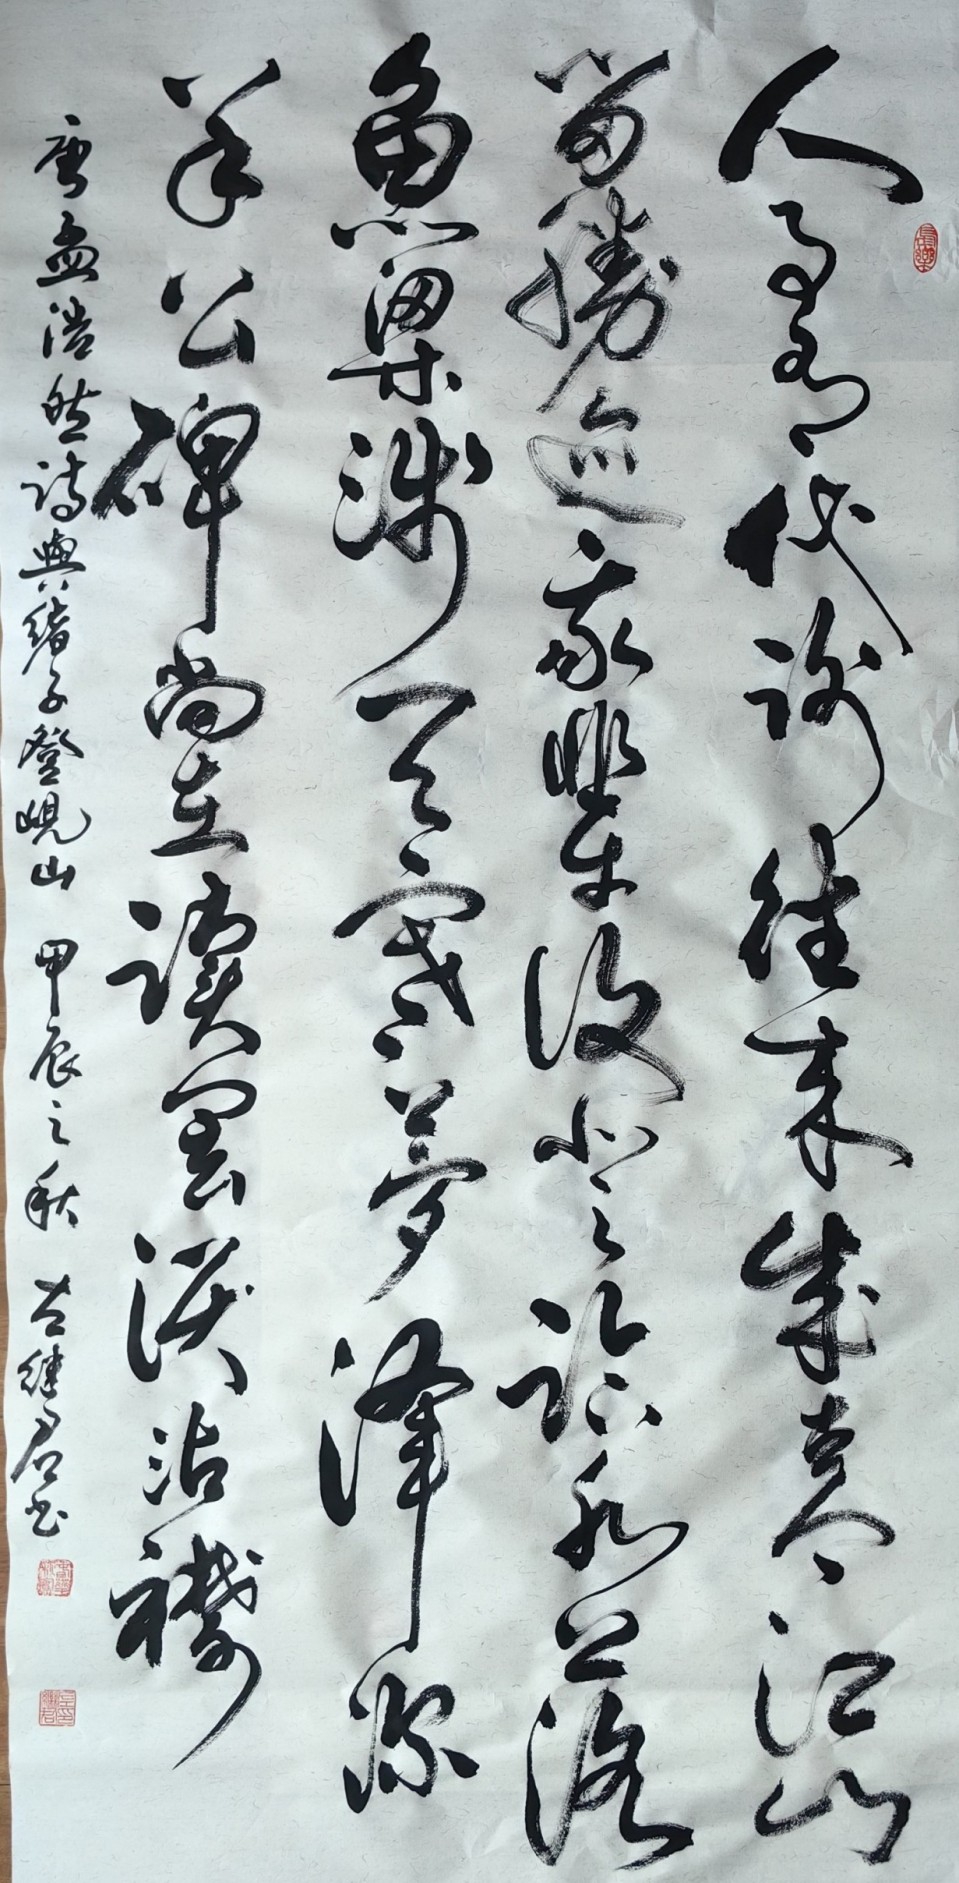 人事有代謝往來成古今江山
留勝迹我輩復登臨水落
魚梁淺天寒夢澤深
羊公碑尚在讀罷淚沾襟
唐孟浩然詩與諸子登峴山 甲辰之秋 繼君书